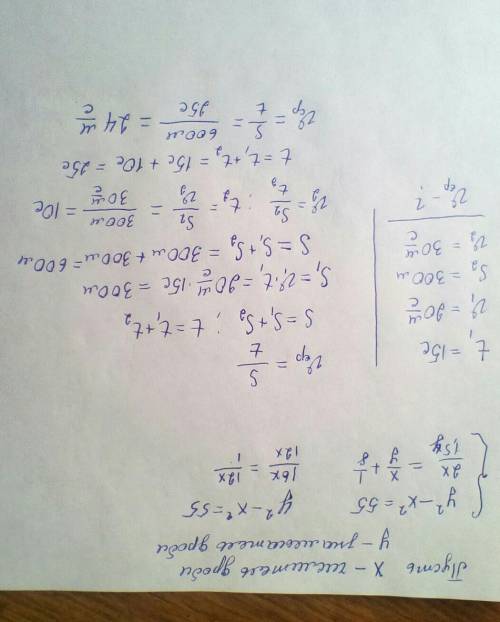 Пусть x - числитель дроби
y - знаменатель дроби
{ y² - x² = 55     y² - x² = 55
2x/1,5y = x/y + 1/8     16x/12x = 12x/1
t₁ = 15с
v₁ = 20 м/с
S₂ = 300м
v₂ = 30 м/с
vср - ?
vср = S/t
S = S₁ + S₂ ; t = t₁ + t₂
S₁ = v₁·t₁ = 20 м/с · 15с = 300м
S = S₁ + S₂ = 300м + 300м = 600м
v₂ = S₂/t₂ ; t₂ = S₂/v₂ = 300м/30 м/с = 10с
t = t₁ + t₂ = 15с + 10с = 25с
vср = S/t = 600м/25с = 24 м/с